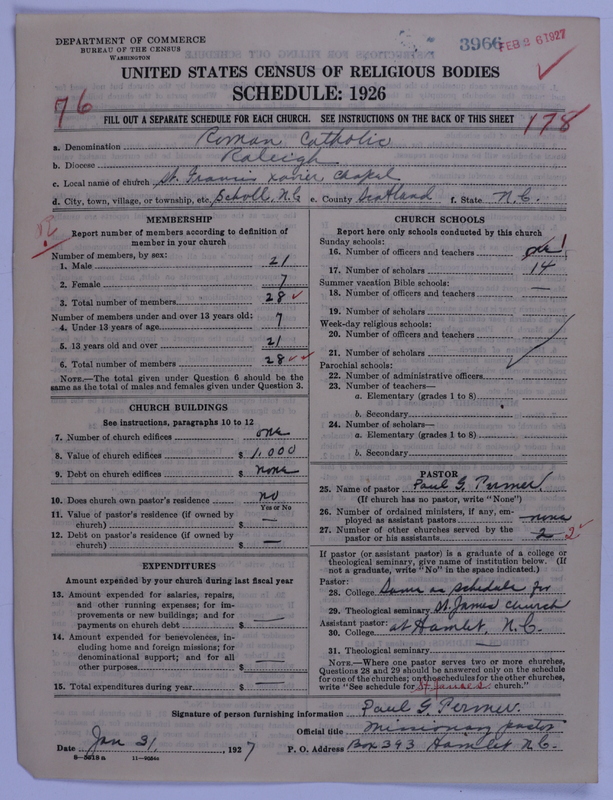 DEPARTMENT OF COMMERCE
BUREAU OF THE CENSUS
WASHINGTON
3966
FEB 26 1927
UNITED STATES CENSUS OF RELIGIOUS BODIES
SCHEDULE: 1926
76
178
FILL OUT A SEPARATE SCHEDULE FOR EACH CHURCH. SEE INSTRUCTIONS ON THE BACK OF THIS SHEET
a. Denomination Roman Catholic
b. Diocese Raleigh
c. Local name of church St. Francis Xavier Chapel
d. City, town, village, or township, etc. Scholl, N.C e. County Scotland f. State N.C.
MEMBERSHIP
Report number of members according to definition of
member in your church
Number of members, by sex:
1. Male 21
2. Female 7
3. Total number of members 28
Number of members under and over 13 years old:
4. Under 13 years of age 7
5. 13 years old and over 21
6. Total number of members 28
NOTE.—The total given under Question 6 should be
same as the total of males and females given under Question 3.
CHURCH BUILDINGS
See instructions, paragraphs 10 to 12
7. Number of church edifices one
8. Value of church edifices $ 1,000
9. Debt on church edifices $ none
10. Does church own pastor's residence no
Yes or No
11. Value of pastor's residence (if owned by
church) $ —
12. Debt on pastor's residence (if owned by
church) $ —
EXPENDITURES
Amount expended by your church during last fiscal year
13. Amount expended for salaries, repairs,
and other running expenses; for im-
provements or new buildings; and for
payments on church debt $ —
14. Amount expended for benevolences, in-
cluding home and foreign missions; for
denominational support; and for all
other purposes $ —
15. Total expenditures during year $ —
CHURCH SCHOOLS
Report here only schools conducted by this church
Sunday schools:
16. Number of officers and teachers one 1
17. Number of scholars 14
Summer vacation Bible schools:
18. Number of officers and teachers —
19. Number of scholars
Week-day religious schools:
20. Number of officers and teachers
21. Number of scholars
Parochial schools:
22. Number of administrative officers
23. Number of teachers—
a. Elementary (grades 1 to 8)
b. Secondary
24. Number of scholars—
a. Elementary (grades 1 to 8)
b. Secondary
PASTOR
25. Name of pastor Paul G. Termer
(If church has no pastor, write "None")
26. Number of ordained ministers, if any, em-
ployed as assistant pastors none
27. Number of other churches served by the
pastor or his assistants 2 2
If pastor (or assistant pastor) is a graduate of a college or
theological seminary, give name of institution below. (If
not a graduate, write "No" in the space indicated.)
Pastor:
28. College Same as schedule for
29. Theological seminary St. James church
Assistant pastor: at Hamlet, N.C.
30. College
31. Theological seminary —
NOTE.—Where one pastor serves two or more churches,
Questions 28 and 29 should be answered only on the schedule
for one of the churches; on the schedules for the other churches,
write "See schedule for St. James church."
Signature of person furnishing information Paul G. Termer.
Official title Missionary pastor
Date Jan 31, 1927 P. O. Address Box 393 Hamlet N.C.
8—5819a 11—9054a